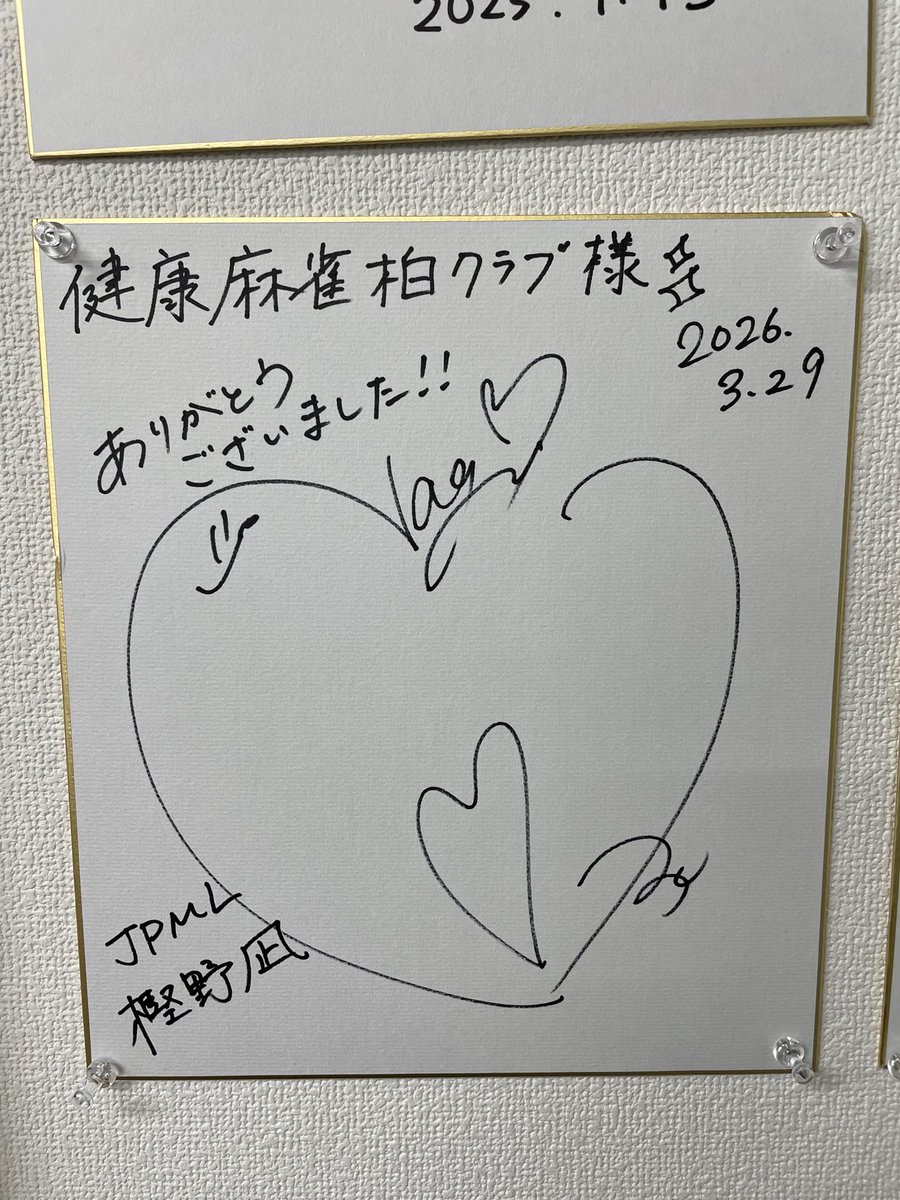 2025.11.15
健康麻雀柏クラブ様
2026.
3.29
ありがとう
ございました!!
Nagi
JPML
樫野凪